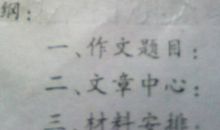 纲：
一、作文题目：
二、文章中心：
三、材料安排：